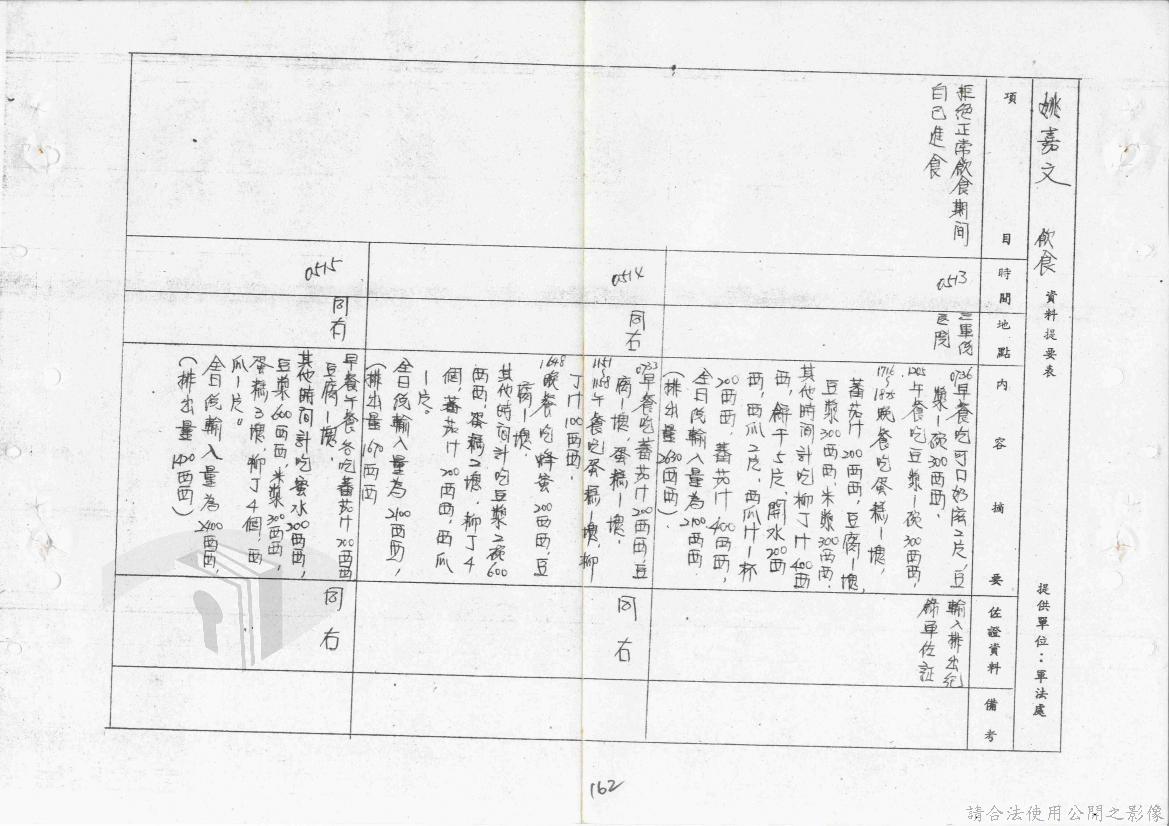 姚嘉文 飲食 資料提要表 提供單位：軍法處
項目
時間
地點
內容摘要
佐證資料
備考
拒絕正常飲食期间
自己進食
0513
三軍總
医院
0736早餐吃可口奶滋2片,豆
漿一碗300西西,
1205午餐吃豆漿一碗300西西,
1716~1825晚餐吃蛋糕一塊,
蕃茄汁200西西,豆腐一塊,
豆漿300西西,米漿300西西.
其他時间計吃柳丁汁400西
西,餅干5片,開水200西
西,西瓜2片,西瓜汁一杯
200西西,蕃茄汁400西西,
全日总輸入量為2100西西.
(排出量2630西西).
輸入排出紀
錄单佐証
0514
同右
0733早餐吃蕃茄汁200西西,豆
腐一塊,蛋糕一塊.
1151~1158午餐吃蛋糕一塊,柳
丁汁100西西.
1648晚餐吃蜂蜜200西西,豆
腐一塊.
其他時间計吃豆漿2碗600
西西,蛋糕2塊.柳丁4
個,蕃茄汁200西西,西瓜
一片。
全日总輸入量為2100西西,
(排出量1670西西
同右
0515
同右
早餐午餐各吃蕃茄汁200西西
豆腐一塊.
其他時间計吃蜜水200西西,
豆漿600西西,米漿300西西,
蛋糕3塊,柳丁4個,西
瓜一片。
全日总輸入量為2400西西,
(排出量1420西西)
同右
162
請合法使用公開之影像